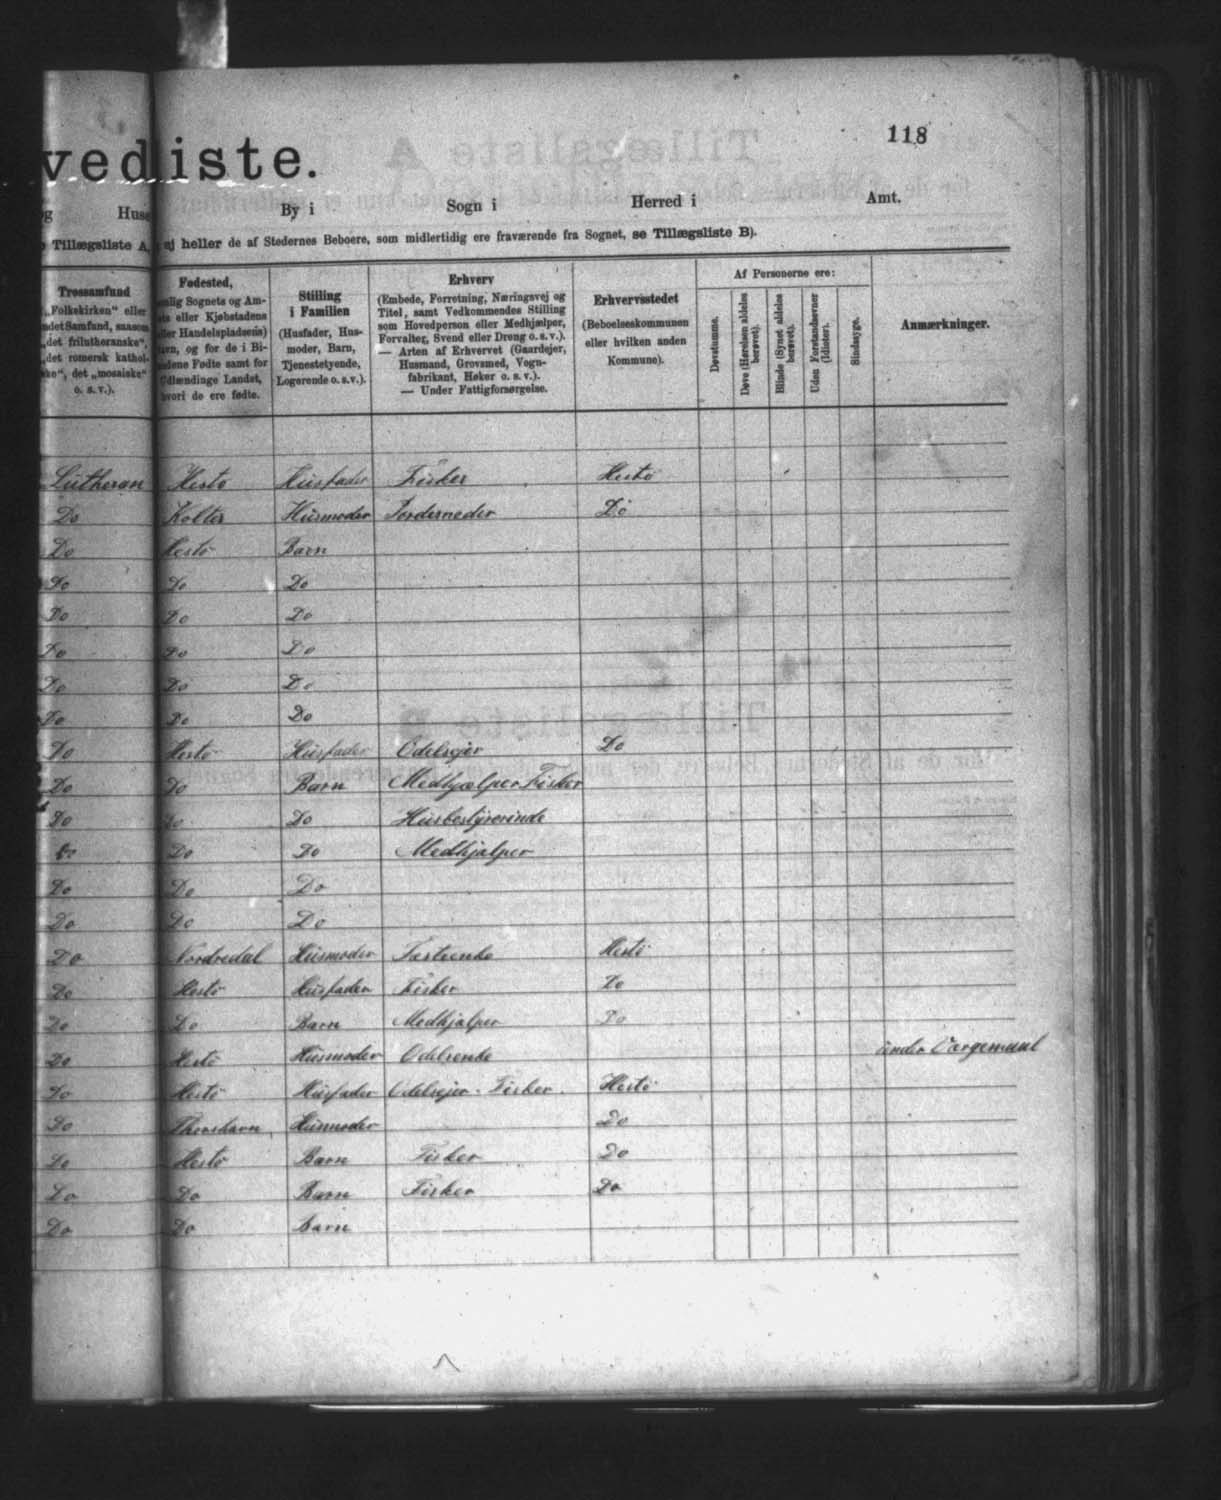 118
vedliste.
og Huse By i Sogn i Herred i Amt.
Tillægsliste A, ej heller de af Stedernes Beboere, som midlertidig ere fraværende fra Sognet, se Tillægsliste B).
Trossamfund
„Folkekirken“ eller
andet Samfund, saasom
„det frilutheranske“,
„det romersk kathol-
ske“, det „mosaiske“
o. s. v.).
Fødested,
nemlig Sognets og Am-
ts eller Kjøbstadens
eller Handelspladsens)
Navn, og for de i Bi-
landene Fødte samt for
Udlændinge Landet,
hvori de ere fødte.
Stilling
i Familien
(Husfader, Hus-
moder, Barn,
Tjenestetyende,
Logerende o. s. v.).
Erhverv
(Embede, Forretning, Næringsvej og
Titel, samt Vedkommendes Stilling
som Hovedperson eller Medhjælper,
Forvalter, Svend eller Dreng o. s. v.).
— Arten af Erhvervet (Gaardejer,
Husmand, Grovsmed, Vogn-
fabrikant, Høker o. s. v.).
— Under Fattigforsørgelse.
Erhvervsstedet
(Beboelseskommunen
eller hvilken anden
Kommune).
Af Personerne ere:
Døvstumme.
Døve (Hørelsen aldeles
berøvet).
Blinde (Synet aldeles
berøvet).
Uden Forstandsevner
(Idioter).
Sindssyge.
Anmærkninger.
Lutheran Hestö Husfader Fisker Hestö
Do Kolter Husmoder Jordemoder Do
Do Hestö Barn
Do Do Do
Do Do Do
Do Do Do
Do Do Do
Do Do Do
Do Hestö Husfader Odelsejer Do
Do Do Barn Medhjælper Fisker
Do Do Do Husbestyrerinde
Do Do Do Medhjælper
Do Do Do
Do Do Do
Do Nordredal Husmoder Fæsteenke Hestö
Do Hestö Husfader Fisker Do
Do Do Barn Medhjælper Do
Do Hestö Husmoder Odelsenke under Værgemaal
Do Hestö Husfader Odelsejer - Fisker Hestö
Do Thorshavn Husmoder Do
Do Hestö Barn Fisker Do
Do Do Barn Fisker Do
Do Do Barn